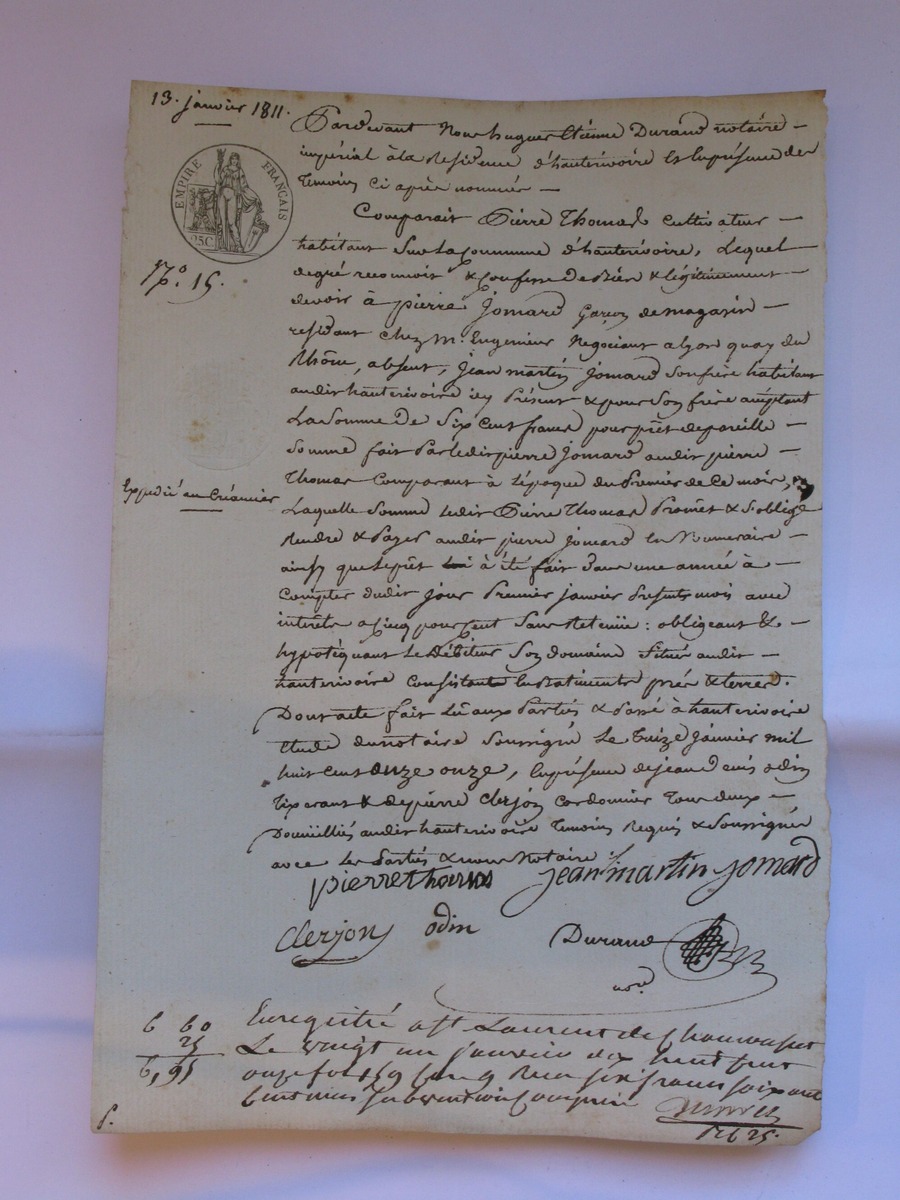 13. janvier 1811.
Pardevant Nous hugues Etienne Durand notaire
impérial à la Residence d'hauterivoire & en présence des
temoins ci après nommés
EMPIRE FRANÇAIS
25C
Comparait Pierre Thomas cultivateur
habitant sur la Commune d'hauterivoire, Lequel
de gré reconnoit & Confesse devoir & légitimement
N.o 15.
devoir à pierre Jomard Garçon de magasin
résidant chez m. Negociant a lyon quay du
Rhône, absent, Jean martin Jomard son frère habitant
audit hauterivoire icy Présent & pour son frère acceptant
La somme de Six Cent francs pour prêt de pareille
somme fait Par ledit pierre Jomard audit pierre
Thomas Comparant à l'époque du Premier de Ce mois,
Expedié au Créancier
Laquelle Somme ledit Pierre Thomas Promet & s'oblige
Rendre & Payer audit pierre Jomard en Numeraire
ainsy que le prêt à été fait dans une année à
Compter dudit jour Premier janvier Présent mois avec
intérêts a Cinq pour Cent Sans Retenüe : obligeant &
hypotéquant le Débiteur Son domaine Situé audit
hauterivoire Consistant en Batiments prés & terres.
Dont acte fait Lû aux Parties & Passé à hauterivoire
étude du notaire Soussigné Le treize Janvier mil
huit Cent onze, En présence de jean denis odin
tixerant & de pierre Clerjon Cordonnier tous deux
Domiciliés audit hauterivoire temoins Requis & Soussignés
avec les Parties & nous Notaire.
pierre thomas jean martin jomard
Clerjon odin Durand
not.
6 60
25
6,95
Enregistré a St Laurent de Chamousset
Le vingt un janvier dix huit Cent
onze fo Reçu six francs soixante
Centimes Subvention Comprise